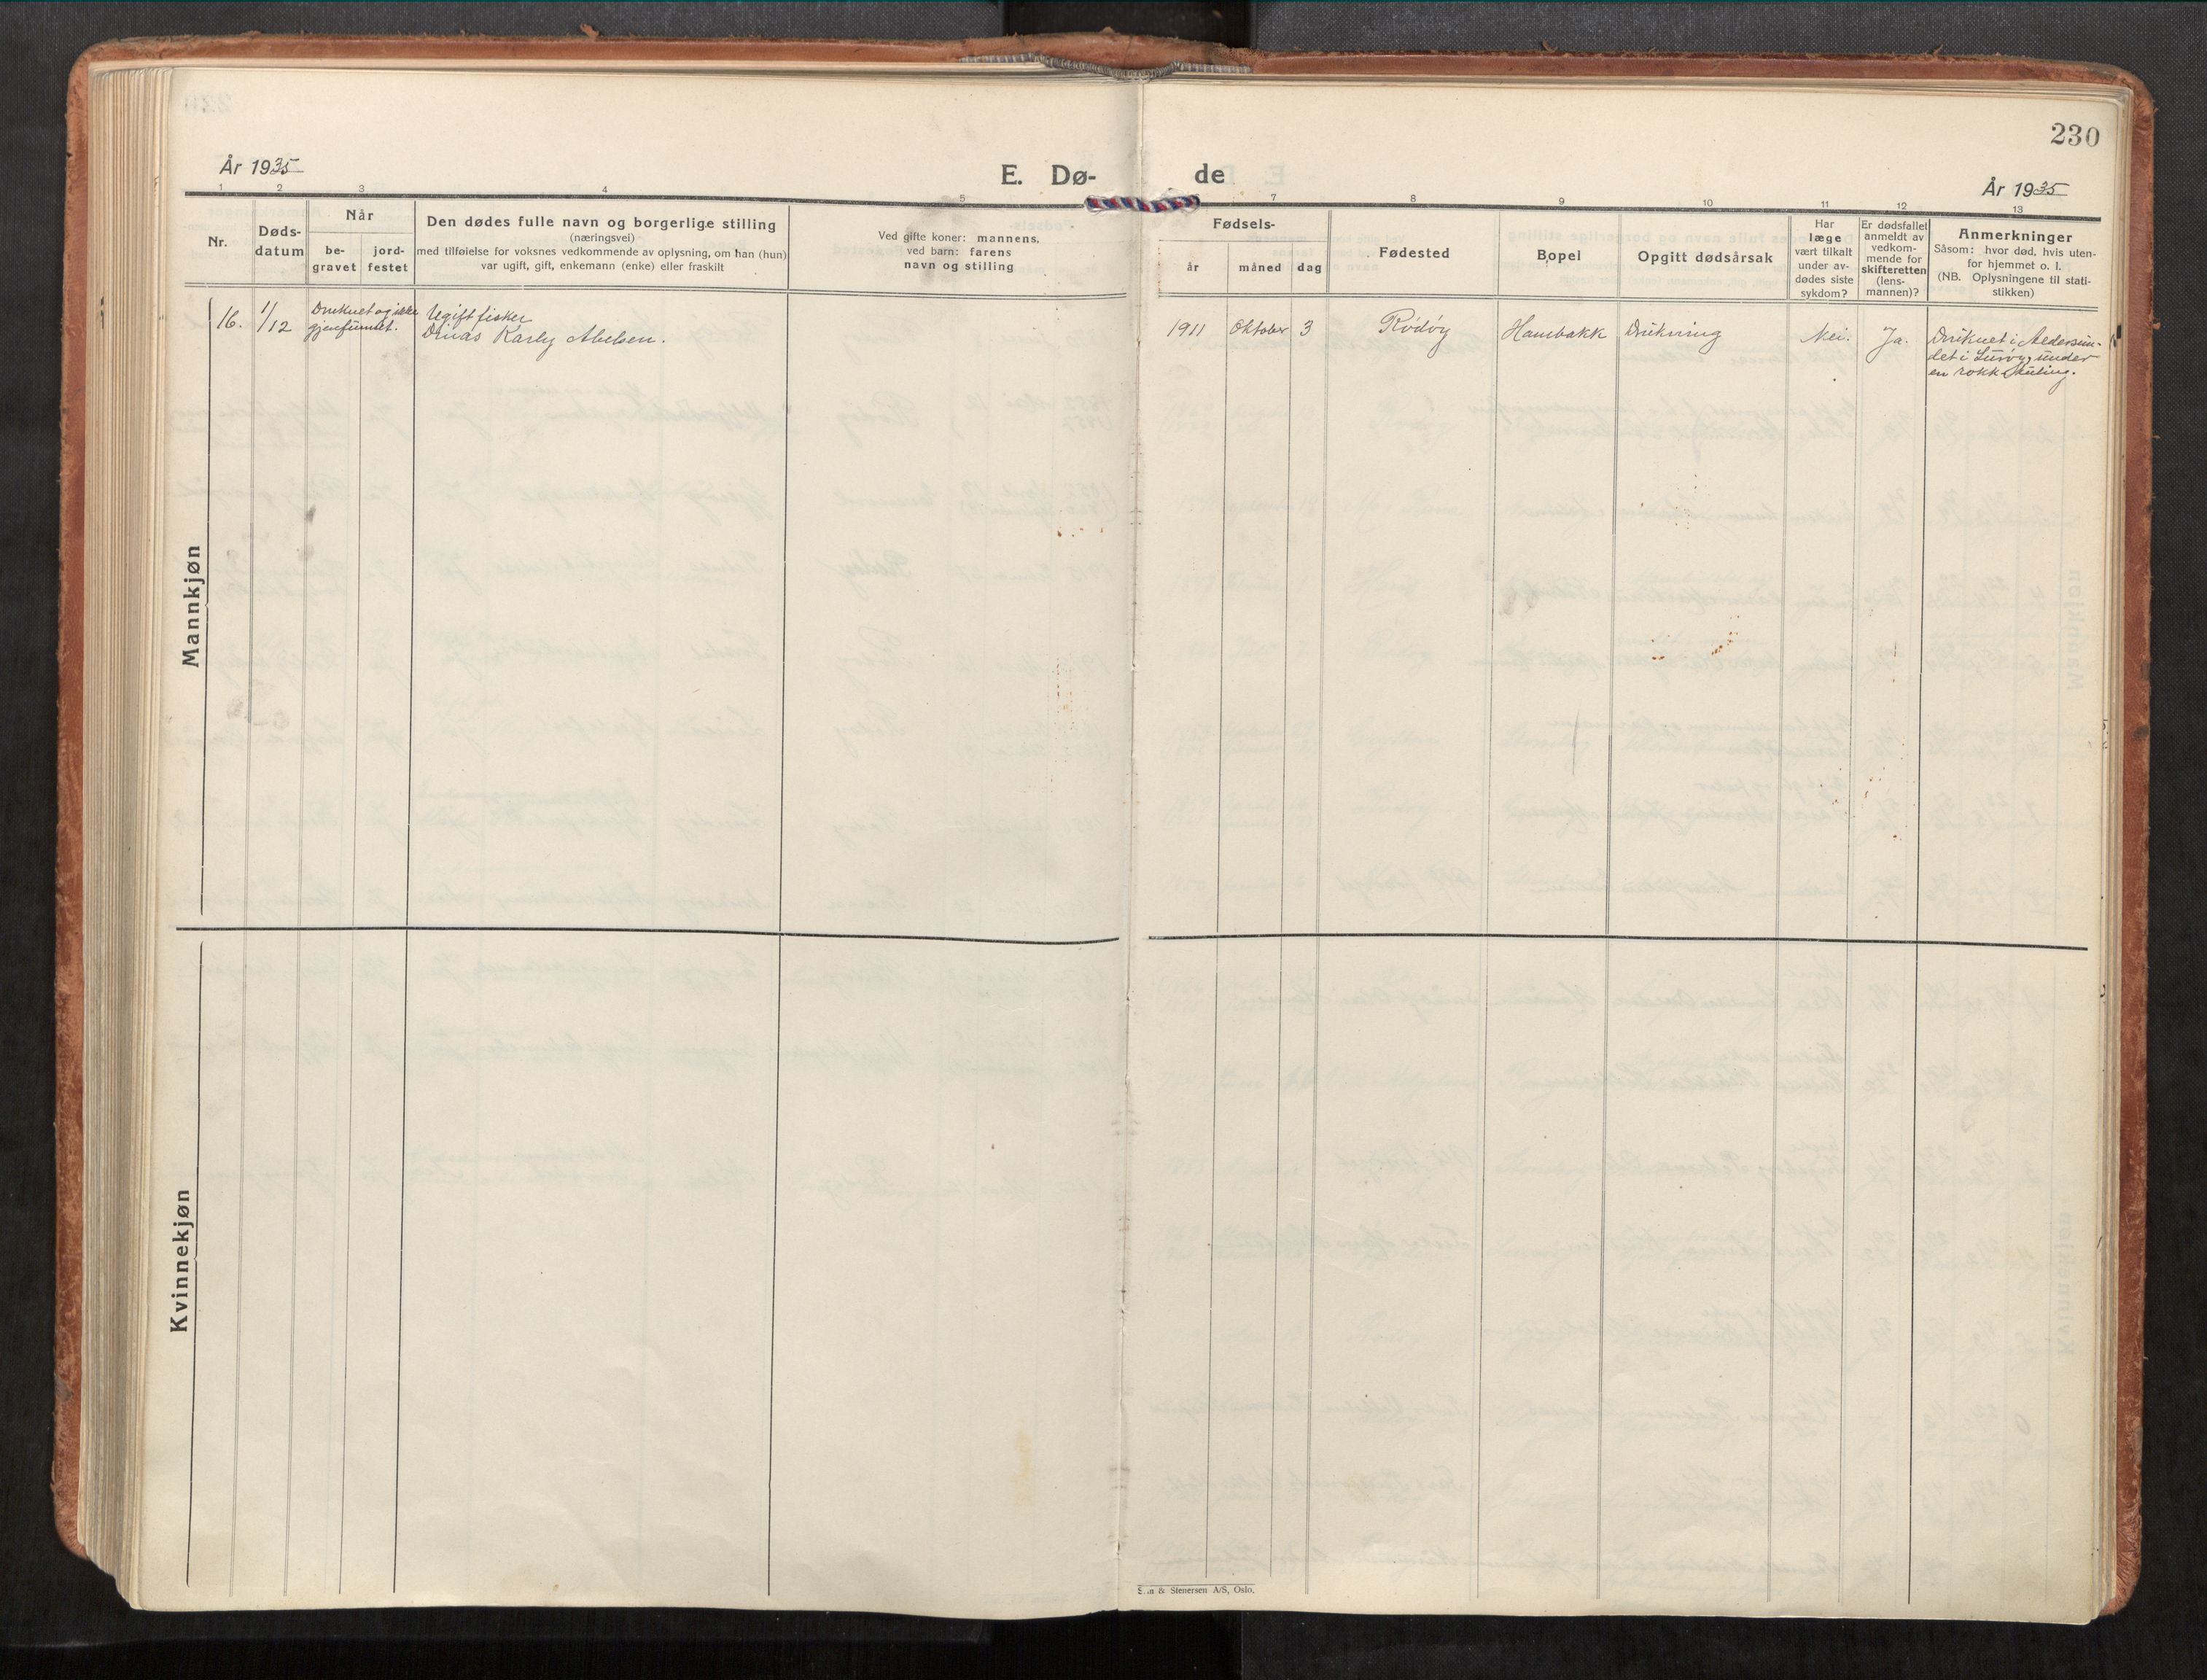 230
År 1935
E. Dø-
de
År 1935
1 2 3 4 5 6 7 8 9 10 11 12 13
Nr.
Døds-
datum
Når
be-
gravet
jord-
festet
Den dødes fulle navn og borgerlige stilling
(næringsvei)
med tilføielse for voksnes vedkommende av oplysning, om han (hun)
var ugift, gift, enkemann (enke) eller fraskilt
Ved gifte koner: mannens,
ved barn: farens
navn og stilling
Fødsels-
år
måned
dag
Fødested
Bopel
Opgitt dødsårsak
Har
læge
vært tilkalt
under av-
dødes siste
sykdom?
Er dødsfallet
anmeldt av
vedkom-
mende for
skifteretten
(lens-
mannen)?
Anmerkninger
Såsom: hvor død, hvis uten-
for hjemmet o. l.
(NB. Oplysningene til stati-
stikken)
Mannkjøn
16.
1/12
Druknet og ikke
gjenfunnet.
Ugift fisker
Karly Abelsen.
1911
Oktober
3
Rødøy
Hambakk
Drukning
Nei.
Ja.
Druknet i Aldersun-
det i Lurøy, under
en rokk
Kvinnekjøn
& Stenersen A/S, Oslo.